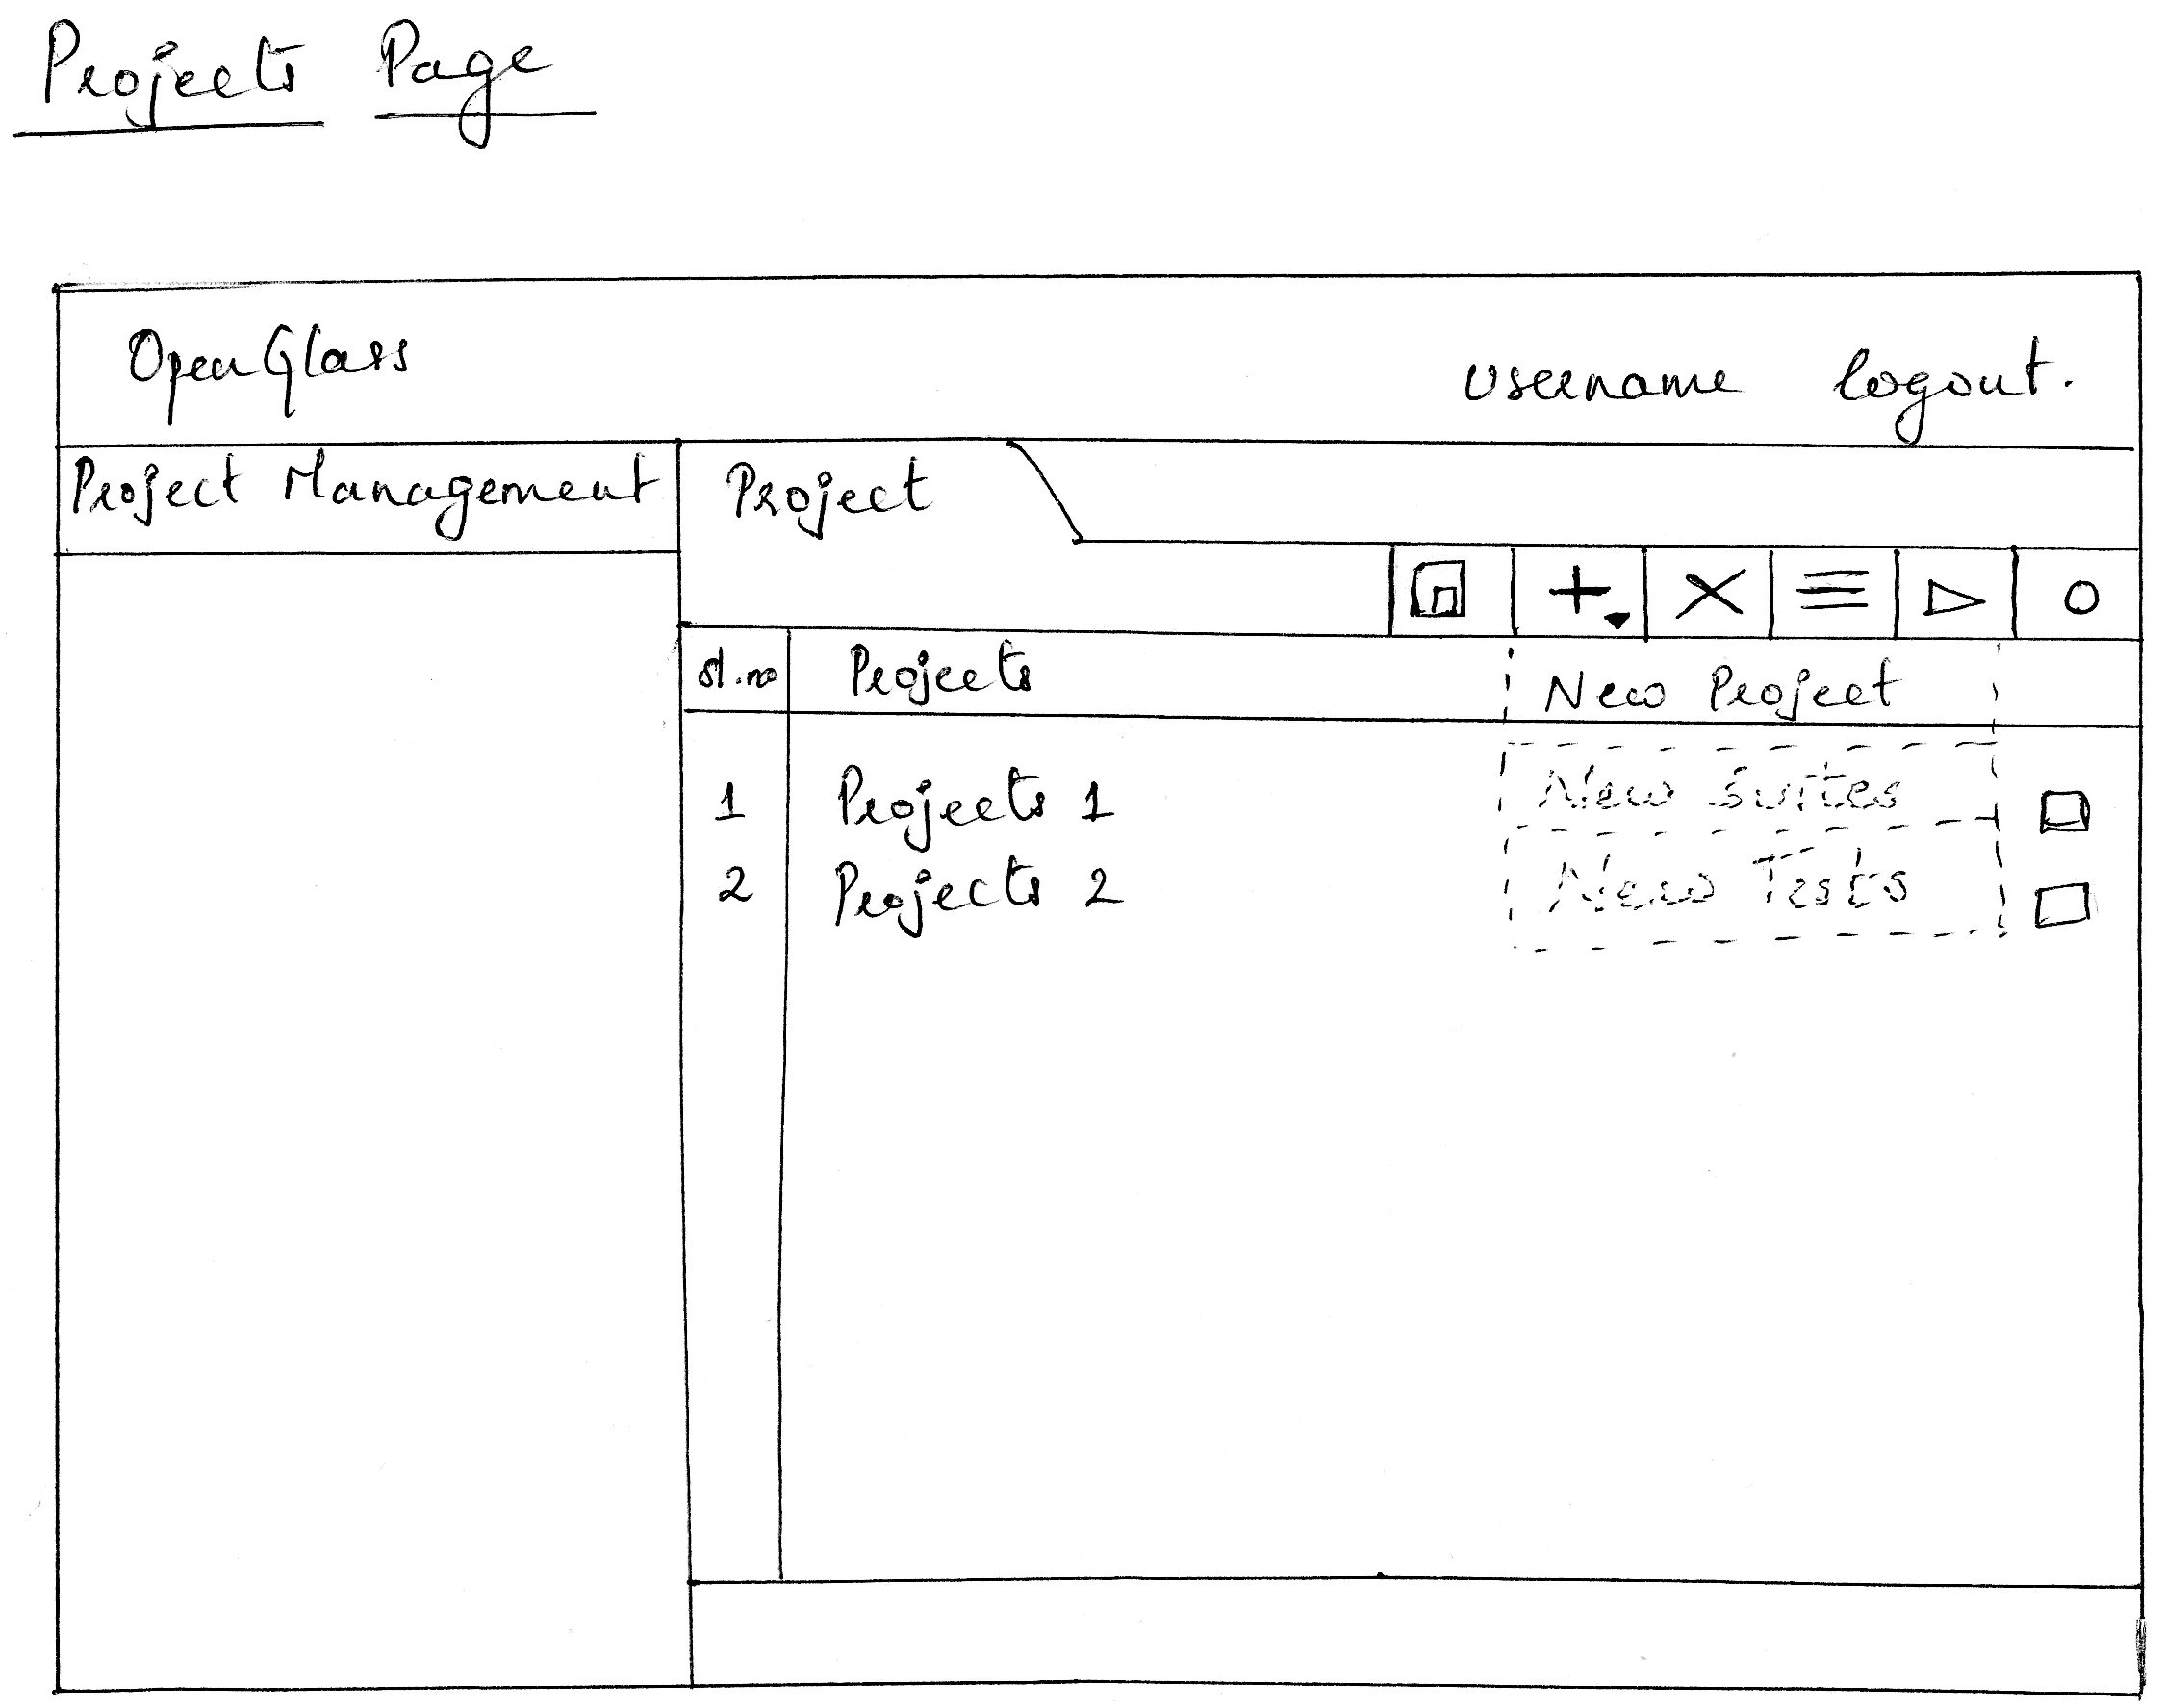 Projects Page
OpenGlass username logout.
Project Management Project
sl.no Projects New Project
1 Projects 1 New Suites
2 Projects 2 New Tests